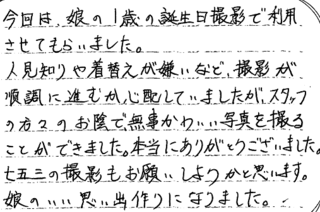 今回は、娘の1歳の誕生日撮影で利用
させてもらいました。
人見知りや着替えが嫌いなど、撮影が
順調に進むか心配していましたが、スタッフ
の方々のお陰で無事かわいい写真を撮る
ことができました。本当にありがとうございました。
七五三の撮影もお願いしようかと思います。
娘のいい思い出作りになりました。